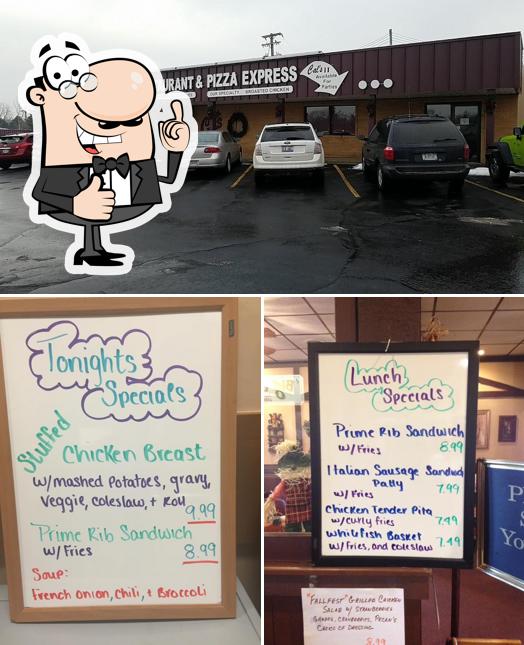 URANT & PIZZA EXPRESS
OUR SPECIALTY BROASTED CHICKEN
Call
Available
For
Parties
Tonights
Specials
Stuffed
Chicken Breast
w/mashed potatoes, gravy,
veggie, coleslaw, + Roll
9.99
Prime Rib Sandwich
w/ Fries
8.99
Soup:
French onion, chili, + Broccoli
Lunch
Specials
Prime Rib Sandwich
w/Fries 8.99
Italian Sausage Sandwich
Patty
w/ Fries 7.99
Chicken Tender Pita
w/curly fries 7.49
Whitefish Basket
w/Fries, and coleslaw 7.49
"FALLFEST" GRILLED CHICKEN
SALAD W/ STRAWBERRIES
GRAPES, CRANBERRIES, PECAN'S
CHOICE OF DRESSING
8.99
P
S
Yo